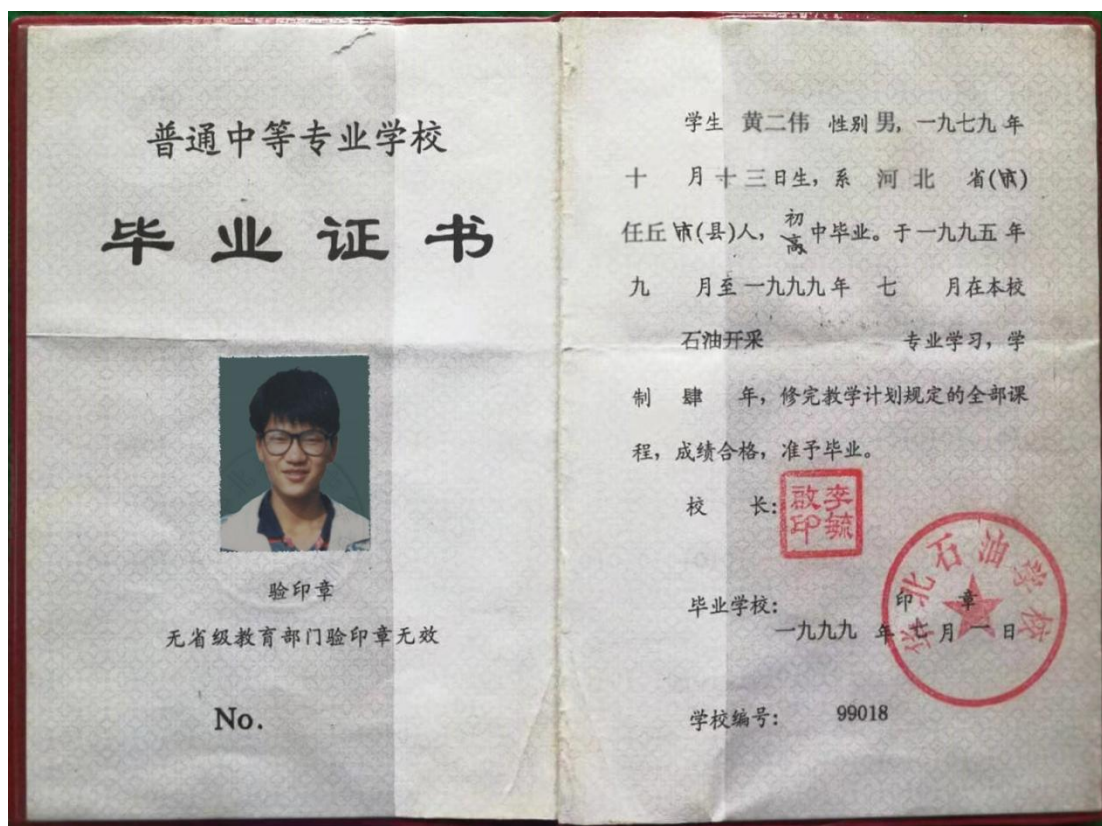 普通中等专业学校
毕业证书
验印章
无省级教育部门验印章无效
No.
学生 黄二伟 性别 男, 一九七九 年
十 月 十三 日生, 系 河北 省(市)
任丘 市(县)人, 初高中毕业。于一九九五 年
九 月至一九九九 年 七 月在本校
石油开采 专业学习, 学
制 肆 年, 修完教学计划规定的全部课
程, 成绩合格, 准予毕业。
校 长:
李毓啟印
毕业学校:
印 章
华北石油学校
一九九九 年 七 月 一 日
学校编号: 99018